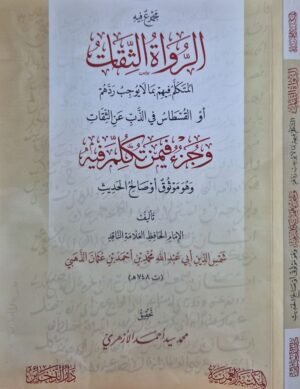 مجموع فيه
الرواة الثقات
المتكلم فيهم بما لا يوجب ردهم
أو القسطاس في الذب عن الثقات
وجزء فيمن تكلم فيه
وهو موثوق أو صالح الحديث
تأليف
الإمام الحافظ العلامة الناقد
شمس الدين أبي عبد الله محمد بن أحمد بن عثمان الذهبي
(ت ٧٤٨ هـ)
تحقيق
محمد سيد أحمد الأزهري